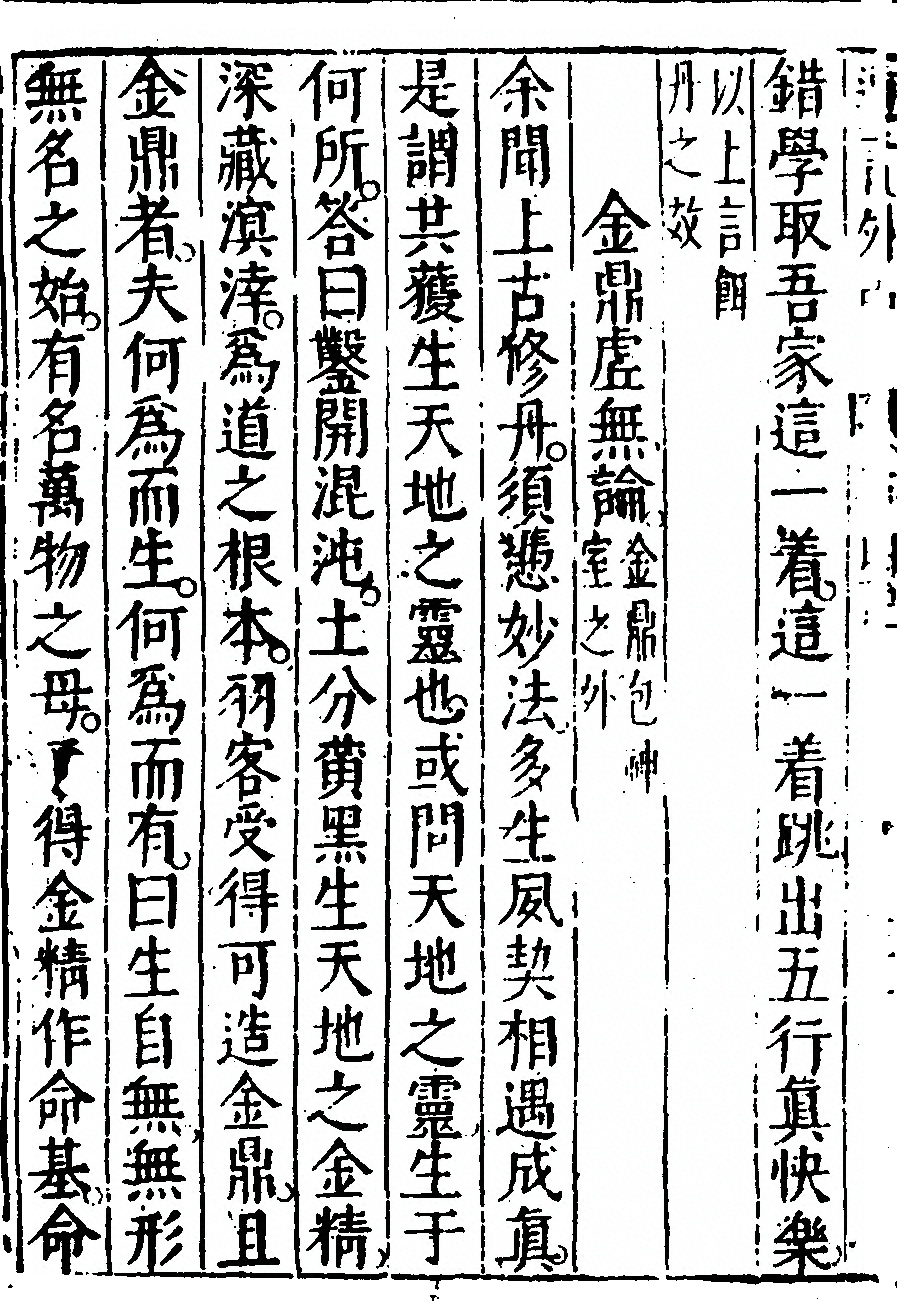 錯學取吾家這一着這一着跳出五行眞快樂
以上言餌
丹之效
金鼎虛無論
金鼎包神
室之外
余聞上古修丹須憑妙法多生夙契相遇成眞
是謂共獲生天地之靈也或問天地之靈生于
何所答曰鑿開混沌土分黄黑生天地之金精
深藏溟涬爲道之根本羽客受得可造金鼎且
金鼎者夫何爲而生何爲而有曰生自無無形
無名之始有名萬物之母了得金精作命基命